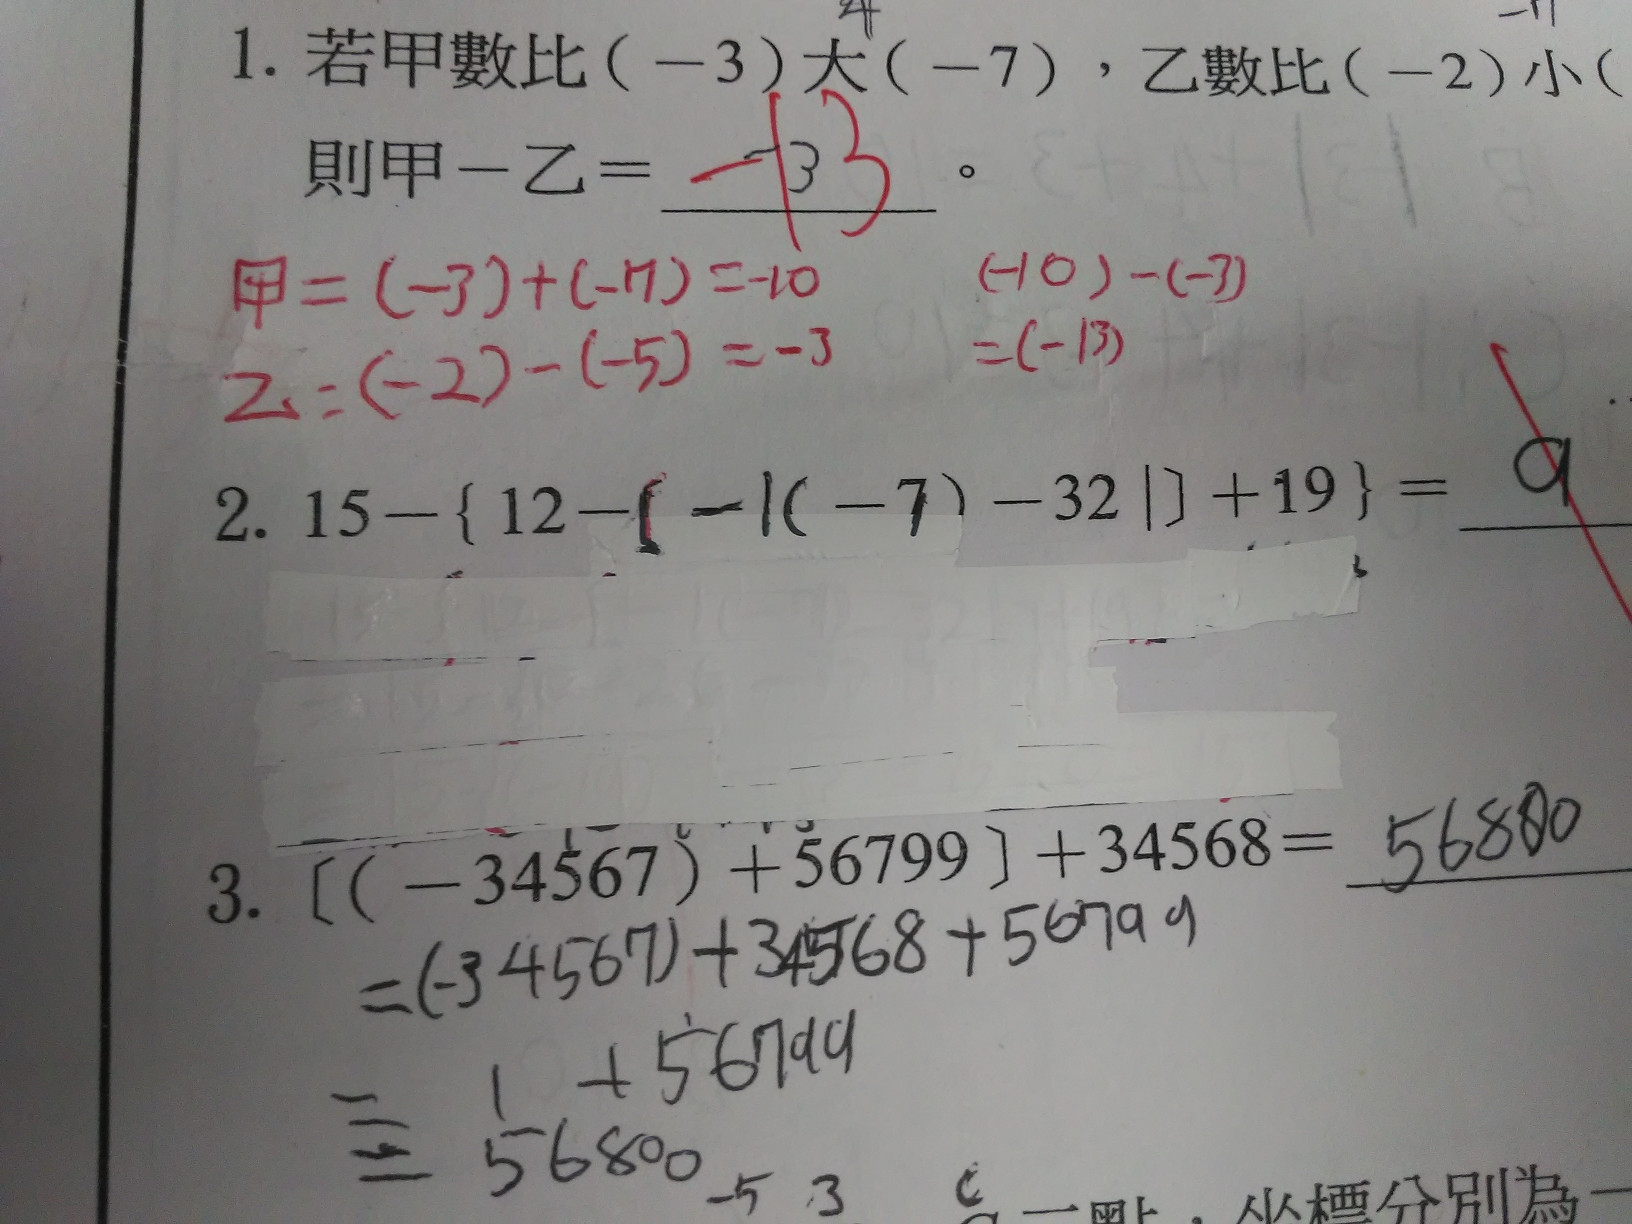 4 -11
1. 若甲數比(-3)大(-7),乙數比(-2)小(
則甲-乙= -13 。
甲=(-3)+(-7)=-10 (-10)-(-3)
乙=(-2)-(-5)=-3 =(-13)
2. 15-{12-[-|(-7)-32|]+19}= 9
3. [(-34567)+56799]+34568= 56800
=(-34567)+34568+56799
= 1 +56799
= 56800
-5 3 C
一點,坐標分別為-